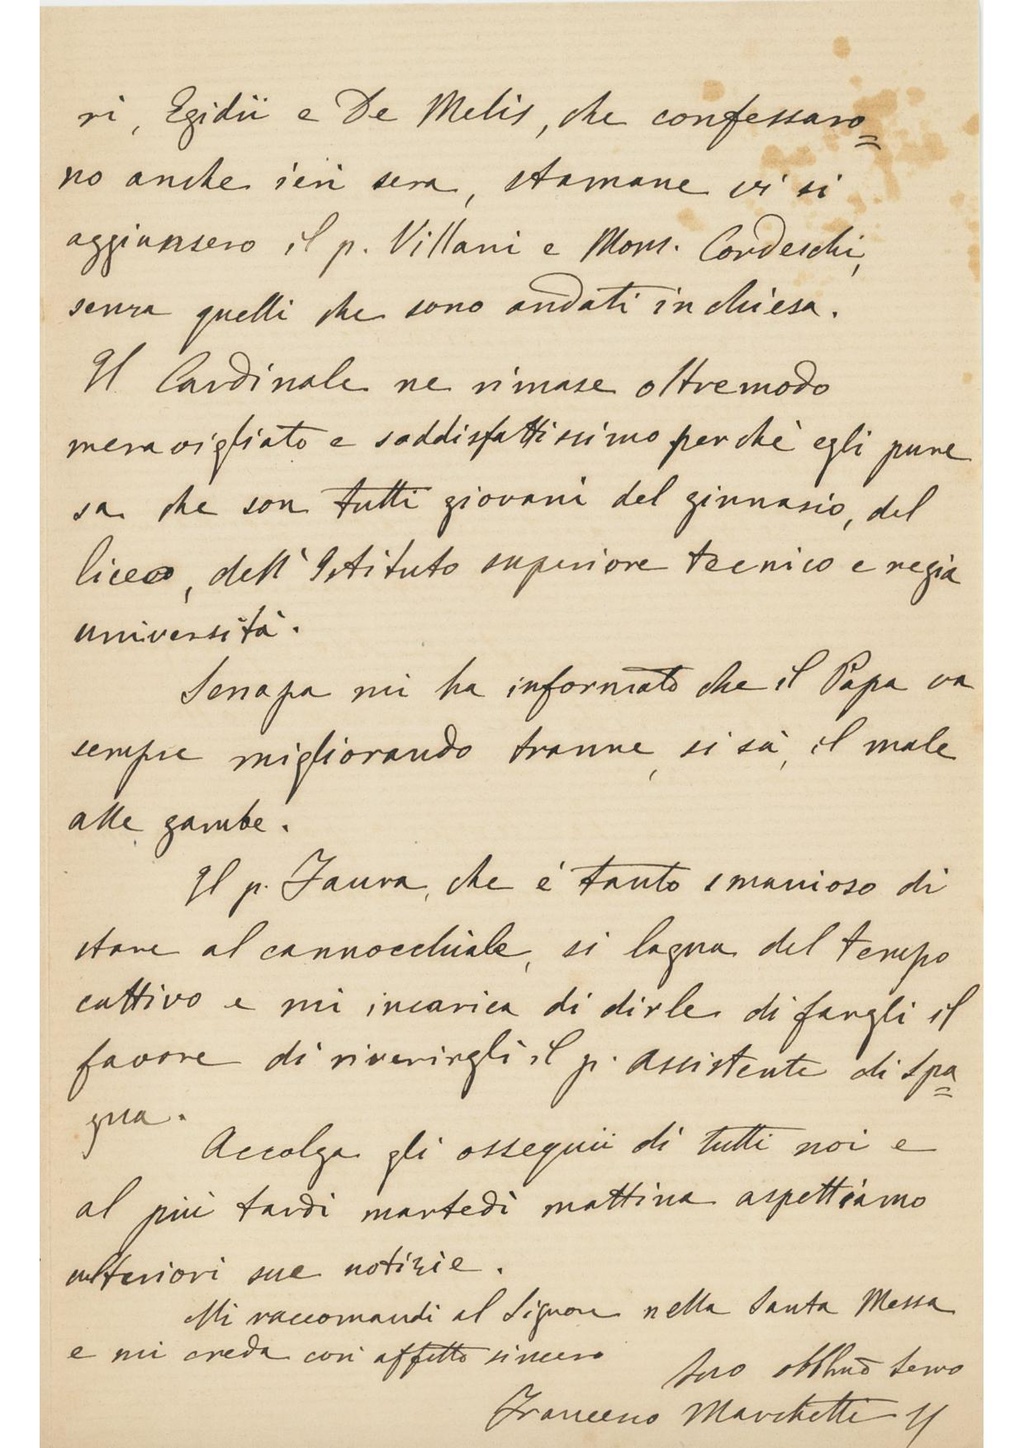 ri, Egidii e De Melis, che confessaro=
no anche ieri sera, stamane vi si
aggiunsero il p. Villani e Mons. Cordeschi,
senza quelli che sono andati in chiesa.
Il Cardinale ne rimase oltremodo
meravigliato e soddisfattissimo perchè egli pure
sa che son tutti giovani del ginnasio, del
liceo, dell'Istituto superiore tecnico e regia
università.
Senapa mi ha informato che il Papa va
sempre migliorando tranne, si sà, il male
alle gambe.
Il p. Faura, che è tanto smanioso di
stare al cannocchiale, si lagna del tempo
cattivo e mi incarica di dirle di fargli il
favore di riverirgli il p. Assistente di Spa=
gna.
Accolga gli ossequii di tutti noi e
al più tardi martedì mattina aspettiamo
ulteriori sue notizie.
Mi raccomandi al Signore nella Santa Messa
e mi creda con affetto sincero
Suo obblmo servo
Francesco Marchetti